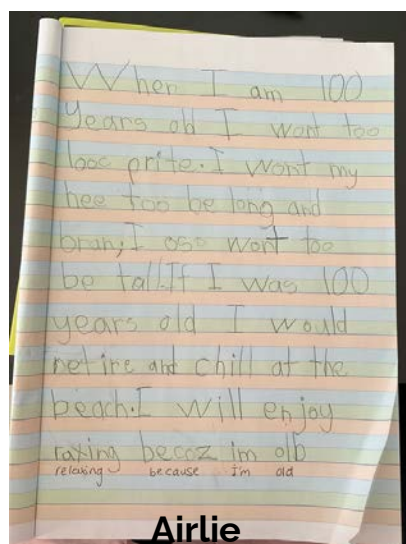 When I am 100
years old I wont too
booc prite. I wont my
hee too be long and
bran, I oso wont too
be tall. If I was 100
years old I would
netire and chill at the
beach. I will enjoy
raxing becoz im olb
relaxing because I'm old
Airlie